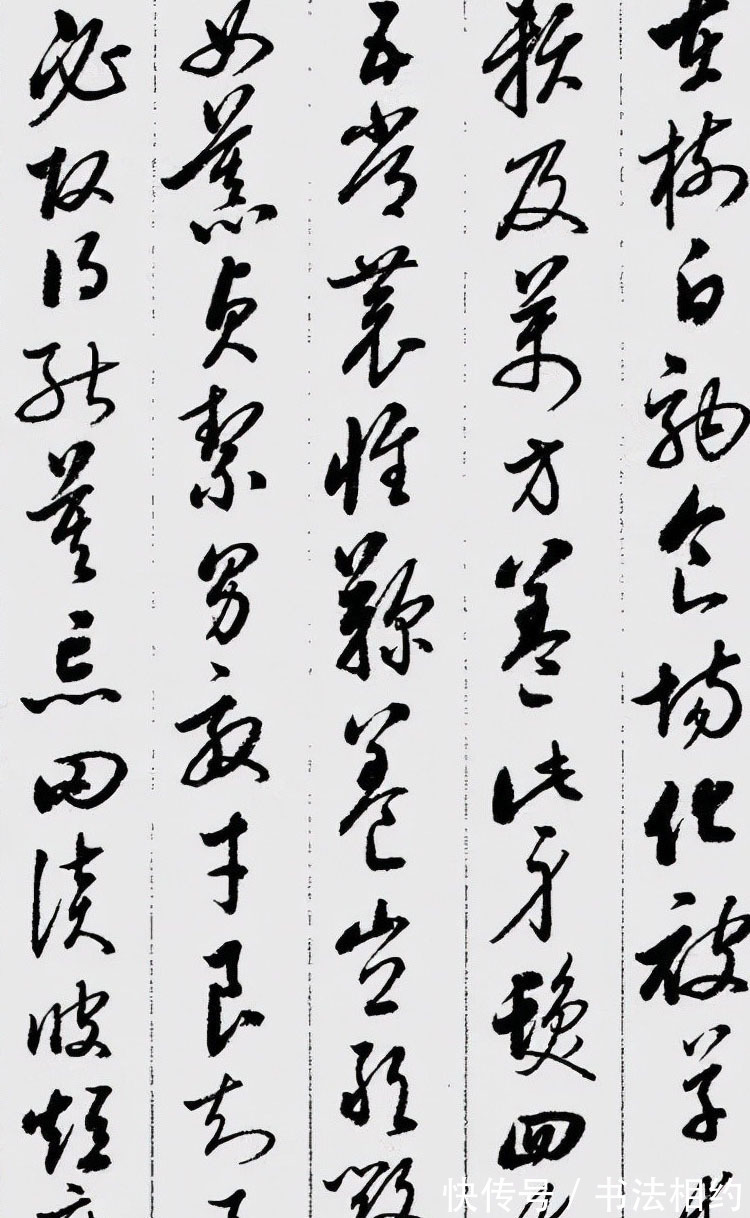 在樹白駒食場化被草木
賴及萬方蓋此身髮四大
五常恭惟鞠養豈敢毀
女慕貞絜男效才良知
必改得能莫忘罔談彼短
快传号 / 书法相约